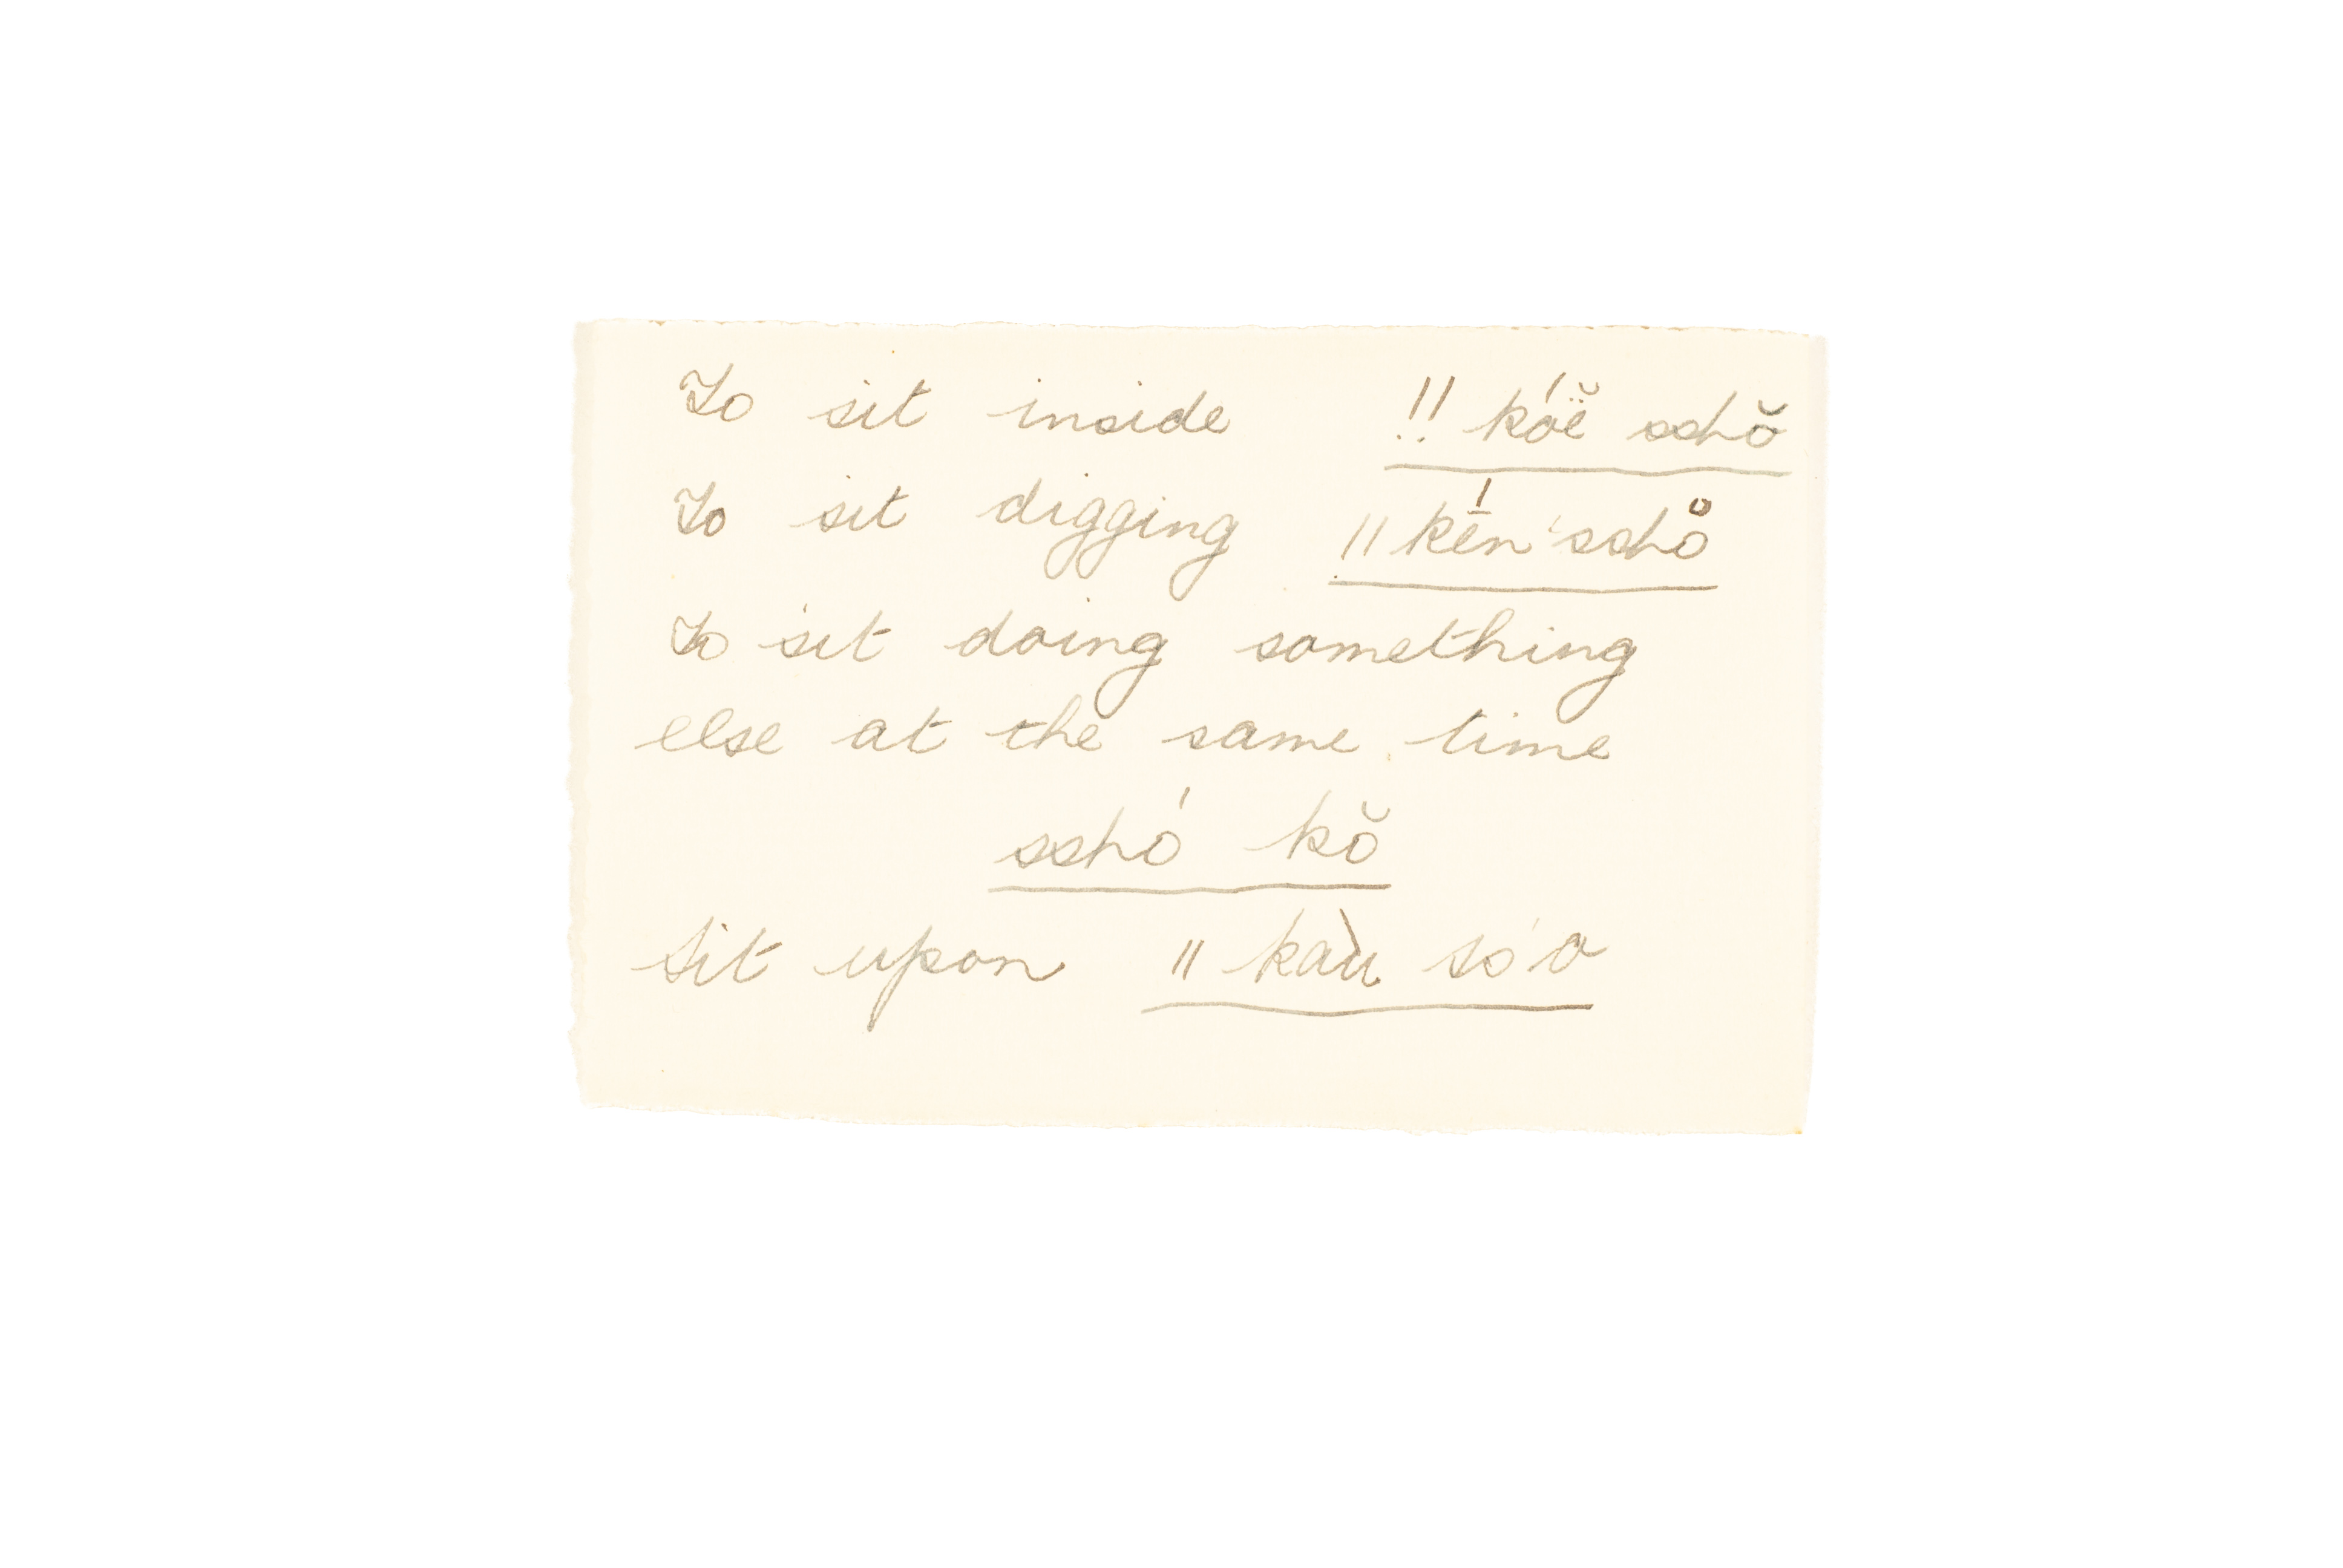 To sit inside !! kóë̆ sshŏ
To sit digging ǁ kḗn ssho̊
To sit doing something
else at the same time
sshó kŏ
Sit upon ǁ kaù so'o